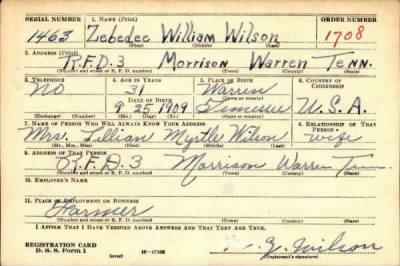 SERIAL NUMBER 1. NAME (Print) ORDER NUMBER
1463 Zebedee William Wilson 1708
(First) (Middle) (Last)
2. ADDRESS (Print)
R.F.D.3 Morrison Warren Tenn.
(Number and street or R. F. D. number) (Town) (County) (State)
3. TELEPHONE 4. AGE IN YEARS 5. PLACE OF BIRTH 6. COUNTRY OF CITIZENSHIP
NO 31 Warren
DATE OF BIRTH (Town or county)
9 25 1909 Tennessee U.S.A.
(Exchange) (Number) (Mo.) (Day) (Yr.) (State or country)
7. NAME OF PERSON WHO WILL ALWAYS KNOW YOUR ADDRESS 8. RELATIONSHIP OF THAT PERSON
Mrs. Lillian Myrtle Wilson wife
(Mr., Mrs., Miss) (First) (Middle) (Last)
9. ADDRESS OF THAT PERSON
R.F.D.3 Morrison Warren Tenn.
(Number and street or R. F. D. number) (Town) (County) (State)
10. EMPLOYER'S NAME
11. PLACE OF EMPLOYMENT OR BUSINESS
Farmer
(Number and street or R. F. D. number) (Town) (County) (State)
I AFFIRM THAT I HAVE VERIFIED ABOVE ANSWERS AND THAT THEY ARE TRUE.
REGISTRATION CARD
D. S. S. Form 1 16-17105 Z. Wilson
(Registrant's signature)